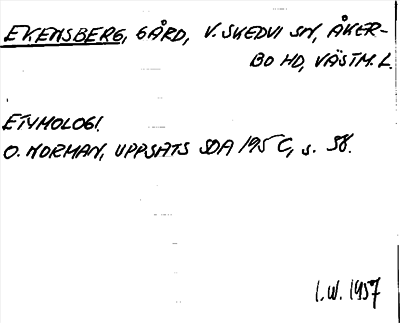 EKENSBERG, GÅRD, V. SKEDVI SN, ÅKER-
BO HD, VÄSTM. L.
ETYMOLOGI.
O. NORMAN, UPPSATS SOA 195 C, s. 58.
I.W. 1957